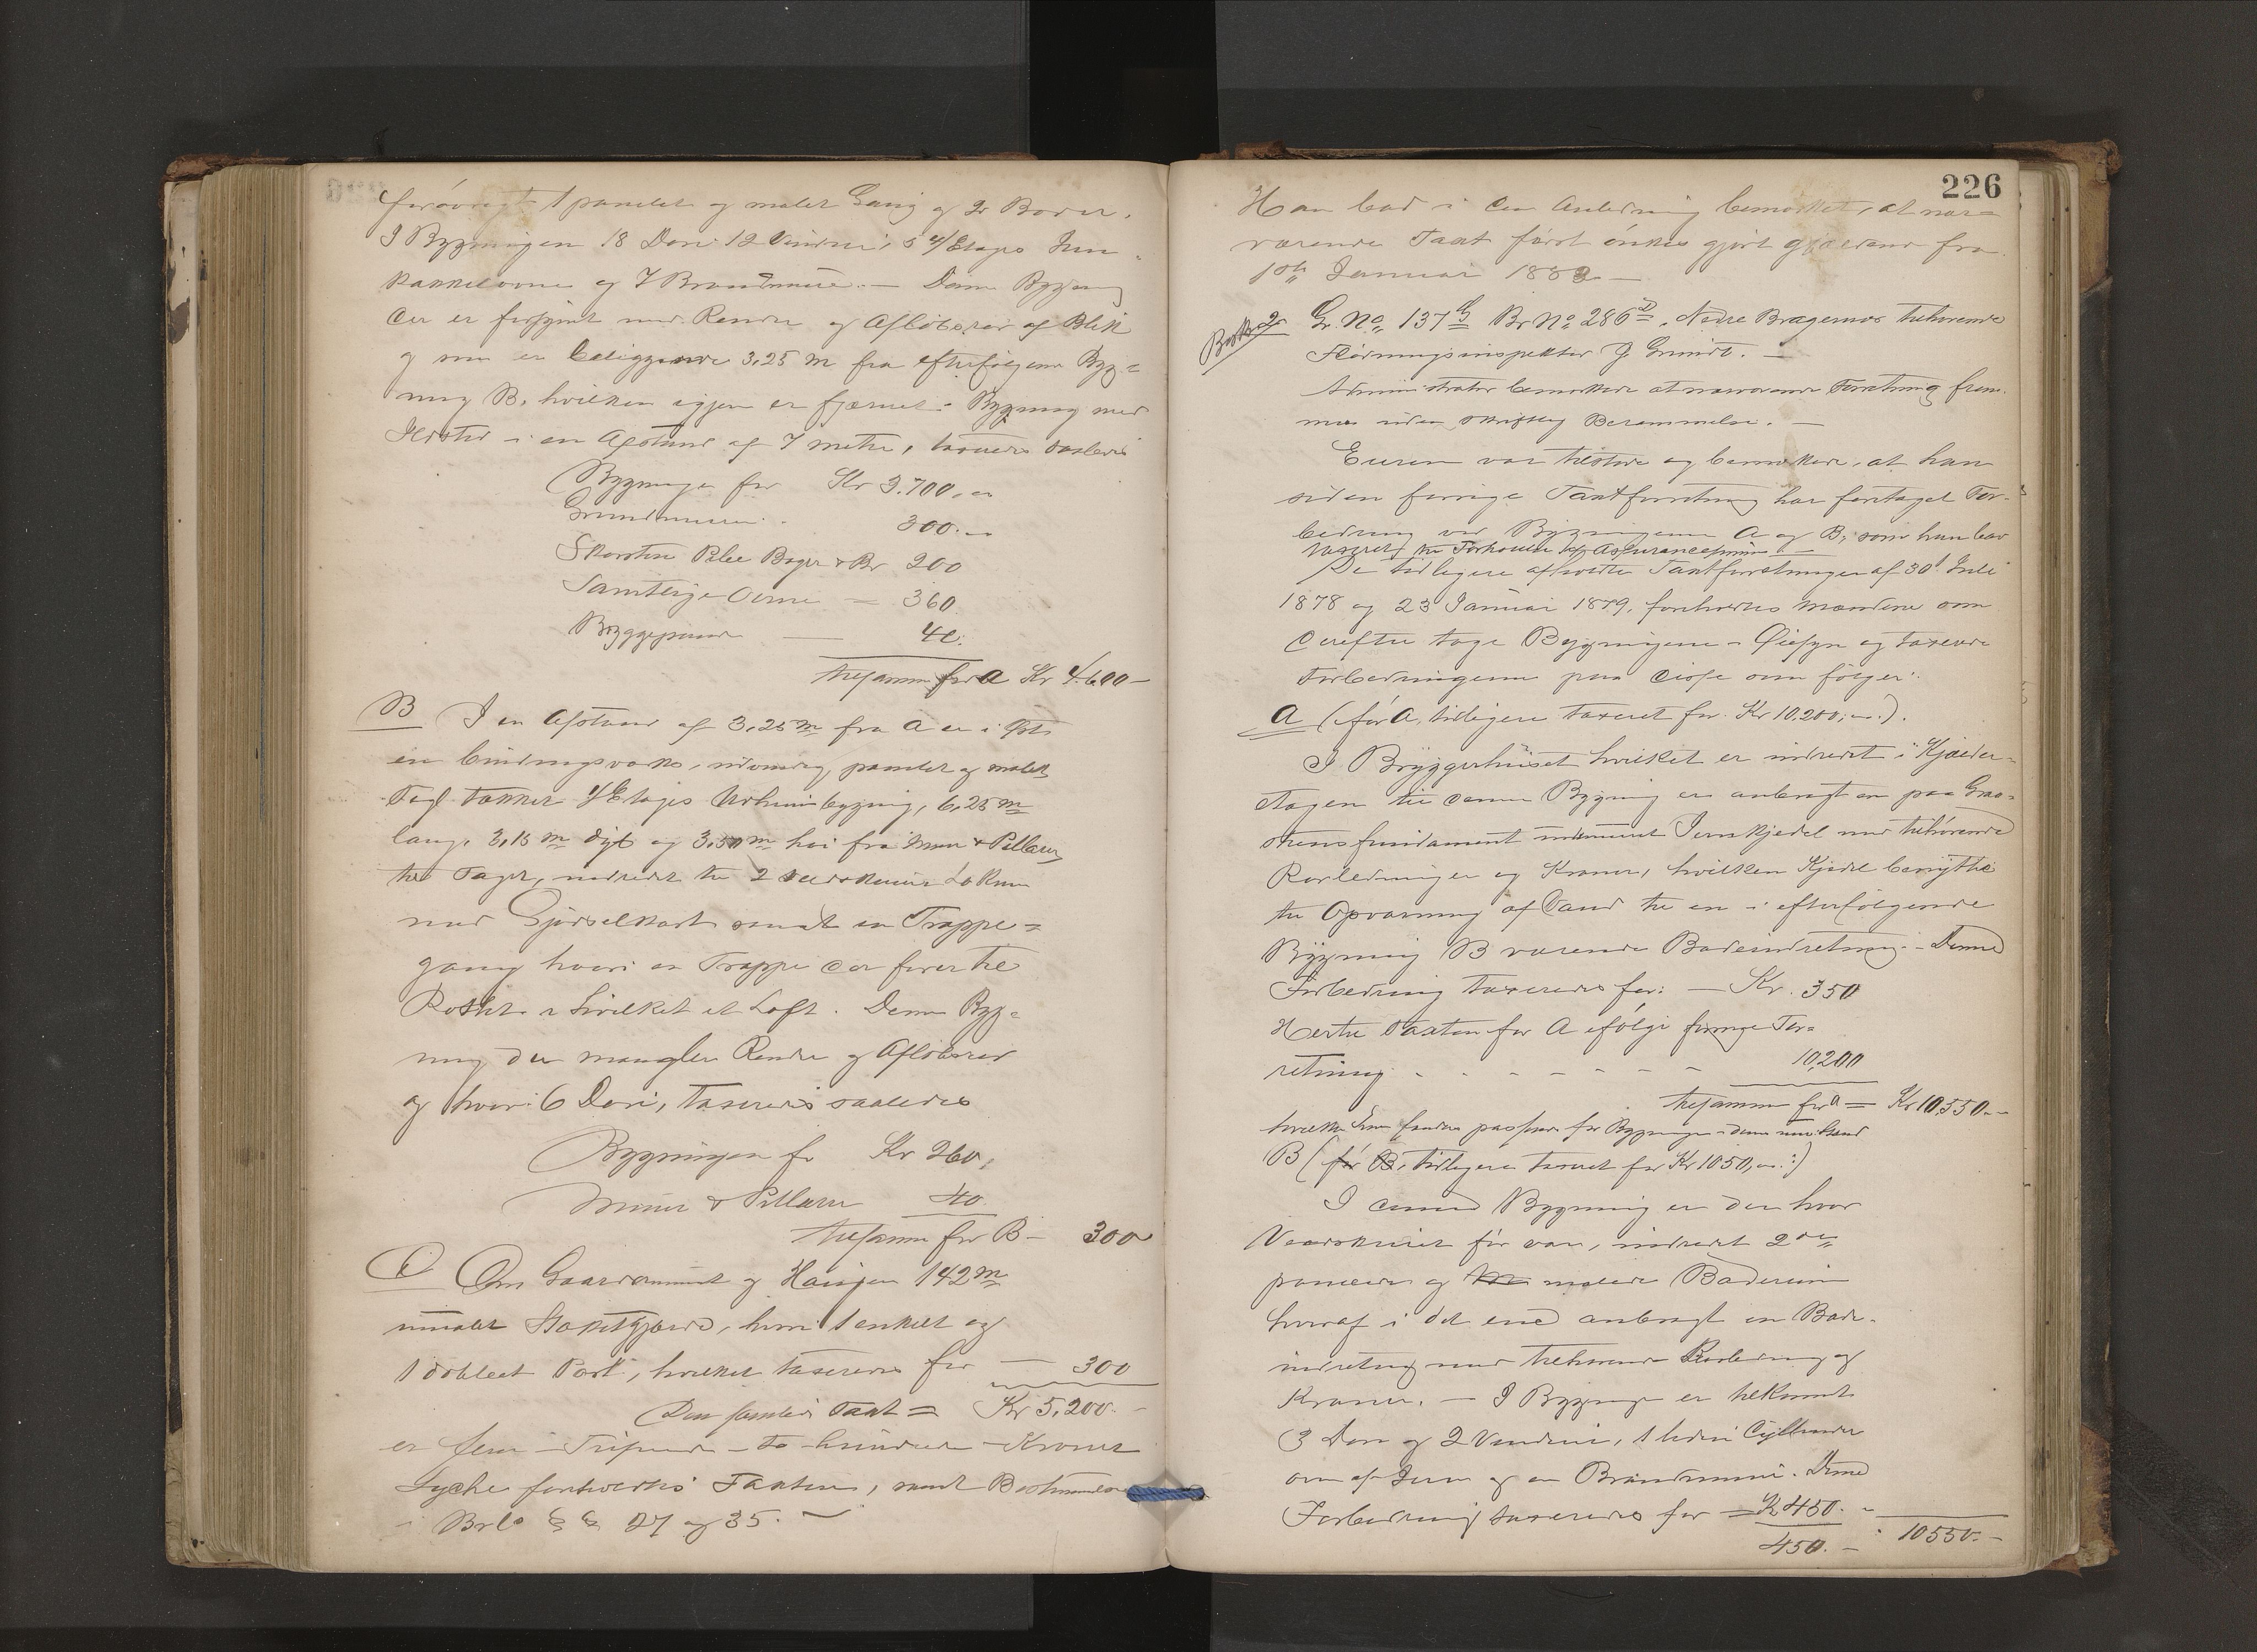 forøvrigt 1 panelet og malet Gang og 2 Boder.
I Bygningen 18 Døre 12 Vinduer, 5 4/Etages Jern
kakkelovne og 7 Brandmure. — Denne Bygning
der er forsynet med Render og Afløbsrør af Blik
og som er beliggende 3,25 m fra efterfølgende Byg=
ning B, hvilken igjen er fjernet i Bygning med
Ildsted i en Afstand af 7 metre, taxeres saaledes
Bygningen for Kr 3.700,
Grundmuren 300.
Skorsten Piber Bager & Br 200
Samtlige Ovne = 360.
Bryggepande — 40.
tilsammen for A Kr 4.600—
B I en Afstand af 3,25 m fra A er i Øst
en bindingsværks, udvendig panelet og malet
Tegltækket 1/Etages Udhusbygning, 6,25 m
lang, 3,15 m dyb og 3,50 m høi fra Mur & Pillarer
til Taget, indredet til 2 Vedskure Lokum
med Gjødselkast samt en Trappe=
gang hvori en Trappe der fører til
Røstet i hvilket et Loft. Denne Byg=
ning der mangler Render og Afløbsrør
og hvori 6 Døre, taxeres saaledes
Bygningen for Kr 260,
Murer & Pillarer 40
tilsammen for B — 300
C Om Gaardsrummet og Haugen 142 m
umalet Stakitgjærde, hvori 1 enkelt og
1 dobbelt Port, hvilket taxeres for — 300
Den samlede Taxt = Kr 5,200. —
er fem – Tusinde – to hundrede – Kroner
Lydte forkyndtes Taxten, samt Bestemmelsen
i Brl. §§ 27 og 35. —
226
Han bad i den Anledning bemærket, at nær=
værende Taxt først ønskes gjort gjældende fra
1ste Januar 1883 —
2 Gr. No. 137 G Br No 286 D. Nedre Bragernæs tilhørende
Flødningsinspektør J Smidt. —
Administrator bemærkede at nærværende Forretning frem-
mes uden skriftlig Berammelse. —
Eieren var tilstede og bemærkede, at han
siden forrige Taxtforretning har foretaget For-
bedring ved Bygningerne A og B, som han bad
taxeret til Forhøielse af Assurancesummen —
De tidligere afholdte Taxtforretninger af 30 Juli
1878 og 23 Januar 1879, foreholdtes Mændene som
derefter toge Bygningerne i Øiesyn og taxerede
Forbedringerne paa disse som følger:
A (før A, tidligere taxeret for Kr 10.200,—).
I Bryggerhuset hvilket er indredet i Kjælder-
etagen til denne Bygning er anbragt en paa Graa-
stensfundament indmuret Jernkjedel med tilhørende
Rørledninger og Kraner, hvilken Kjedel benyttes
til Opvarmning af Vand til en i efterfølgende
Bygning B værende Badeindretning. — Denne
Forbedring taxeredes for: — Kr. 350
Hertil Taxten for A ifølge forrige For=
retning - - - - - - - 10,200
tilsammen for A = Kr 10,550. —
hvilken Sum fandtes passende for Bygningen i dens nu Stand
B (før B, tidligere taxeret for Kr 1050,—:)
I denne Bygning er der hvor
Vedskuret før var, indredet 2de
panelede og malede Baderum
hvoraf i det ene anbragt en Bade-
indretning med tilhørende Rørledning og
Kraner. — I Bygningen er tilkommet
3 Døre og 2 Vinduer, 1 liden Cylinder
ovn af Jern og en Brandmur. Denne
Forbedring taxeredes for = Kr 450. —
450. — 10550. —